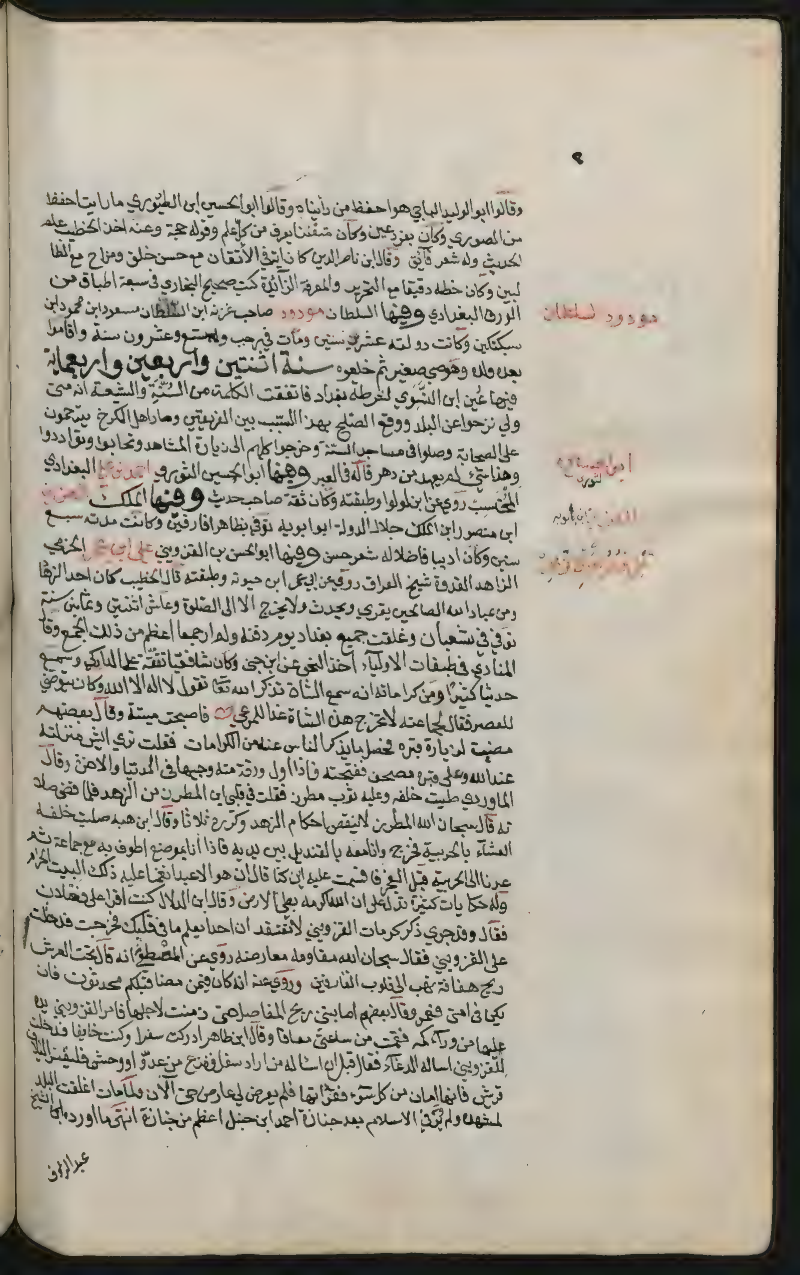 ٩
وقال ابو الوليد الباجي هو احفظ من رأيناه وقال ابو الحسين ابن الطيوري ما رايت احفظ
من الصوري وكان بفرد عين وكان متفننا يعرف من كل علم وقوله حجة وعنه اخذ الخطيب علم
الحديث وله شعر فائق وقال ابن ناصر الدين كان اية في الاتقان مع حسن خلق ومزاح مع الطا
لبين وكان خطه دقيقا مع التحرير والمعرفة الزائدة كتب صحيح البخاري في سبعة اطباق من
الورق البغدادي وفيها السلطان مودود صاحب غزنة ابن السلطان مسعود ابن محمود ابن
سبكتكين وكانت دولته عشر سنين ومات في رجب وله تسع وعشرون سنة واقاموا
بعده ولده وهو صبي صغير ثم خلعوه سنة اثنتين واربعين واربعماية
فيها عين ابن النسوي لشرطة بغداد فاتفقت الكلمة من السنة والشيعة انه متى
ولي نزحوا عن البلد ووقع الصلح بهذا السبب بين الفريقين وصار اهل الكرخ يترحمون
على الصحابة وصلوا في مساجد السنة وخرجوا كلهم الى زيارة المشاهد وتحابوا وتواددوا
وهذا شيء لم يعهد من دهر قاله في العبر وفيها ابو الحسين التوزي احمد بن علي البغدادي
المحتسب روى عن ابن لولوا وطبقته وكان ثقة صاحب حديث وفيها الملك العزيز
ابي منصور ابن الملك جلال الدولة ابن بويه توفي بظاهر ميافارقين وكانت مدته سبع
سنين وكان اديبا فاضلا له شعر حسن وفيها ابو الحسن بن القزويني علي ابن عمر الحربي
الزاهد القدوة شيخ العراق روى عن ابي عمر ابن حيويه وطبقته قال الخطيب كان احد الزهاد
ومن عباد الله الصالحين يقري ويحدث ولا يخرج الا الى الصلاة وعاش اثنتين وثمانين سنة
توفي في شعبان وغلقت جميع بغداد يوم دفنه ولم ار جمعا اعظم من ذلك الجمع وقال
المناوي في طبقات الاولياء اخذ النحو عن ابن جني وكان شافعيا تفقه على الداركي وسمع
حديثا كثيرا ومن كراماته انه سمع الشاة تذكر الله تعا تقول لا اله الا الله وكان يتوضى
للعصر فقال لجماعته لا تخرج هذه الشاة غدا للمرعى فاصبحت ميتة وقال بعضهم
مضيت لزيارة قبره فحصل ما يذكر الناس عنه من الكرامات فقلت ترى ايش منزلته
عند الله وعلى قبره مصحف ففتحته فاذا اول ورقة منه وجيها في الدنيا والاخرة وقال
الماوردي صليت خلفه وعليه ثوب مطرز فقلت في قلبي اين المطرز من الزهد فلما قضى صلا
ته قال سبحان الله المطرز لا ينقض احكام الزهد وكرره ثلاثا وقال ابن هبه صليت خلفه
العشاء بالحربية فخرج وانا معه بالقنديل بين يديه فاذا انا بموضع اطوف به مع جماعة ثم
عدنا الى الحربية قبل الفجر فاقسمت عليه اين كنا قال ان هو الا عبد انعمنا عليه ذلك البيت الحرام
وله حكايات كثيرة تدل على ان الله اكرمه بطي الارض وقال ابن الدلال كنت اقرا على فضلان
فقال وقد جرى ذكر كرمات القزويني لا تعتقد ان احدا يعلم ما في قلبك فخرجت فدخلت
على القزويني فقال سبحان الله مقاومة معارضة روي عن المصطفى انه قال تحت العرش
ريح هفافة تهب الى قلوب العارفين وروي عنه انه كان فيمن مضى قبلكم محدثون فان
يكن في امتي فعمر وقال بعضهم اصابني ريح المفاصل حتى زمنت لاجلها فامر القزويني يده
عليها من وراء كمه فقمت من ساعتي معافا وقال ابن طاهر ادركت سفرا وكنت خايفا فدخلت
للقزويني اساله الدعاء فقال قبل ان اساله من اراد سفرا ففزع من عدو او وحش فليقرا لايلاف
قريش فانها امان من كل سوء فقراتها فلم يعرض لي عارض حتى الآن ولما مات اغلقت البلد
لمشهده ولم ير في الاسلام بعد جنازة احمد ابن حنبل اعظم من جنازة انتهى ما اورده الشيخ
عبد الرؤف
مودود السلطان
ابو الحسين
التوزي